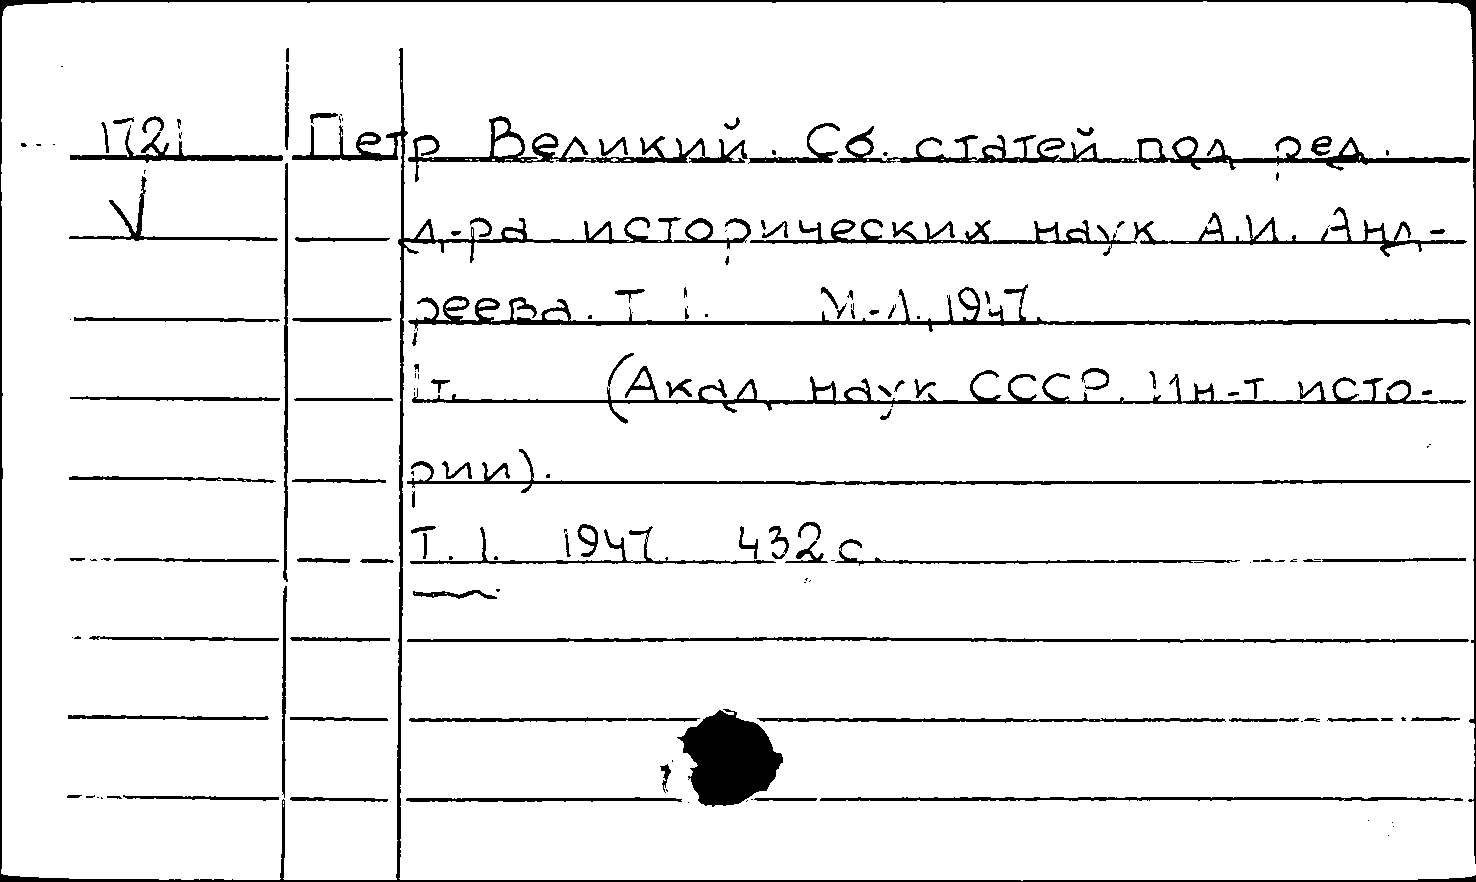 1721 Петр Великий. Сб. статей под ред.
д-ра исторических наук А.И. Анд-
реева. Т 1. М.-Л., 1947.
1т. (Акад. наук СССР. Ин-т исто-
рии).
Т. 1. 1947. 432 с.